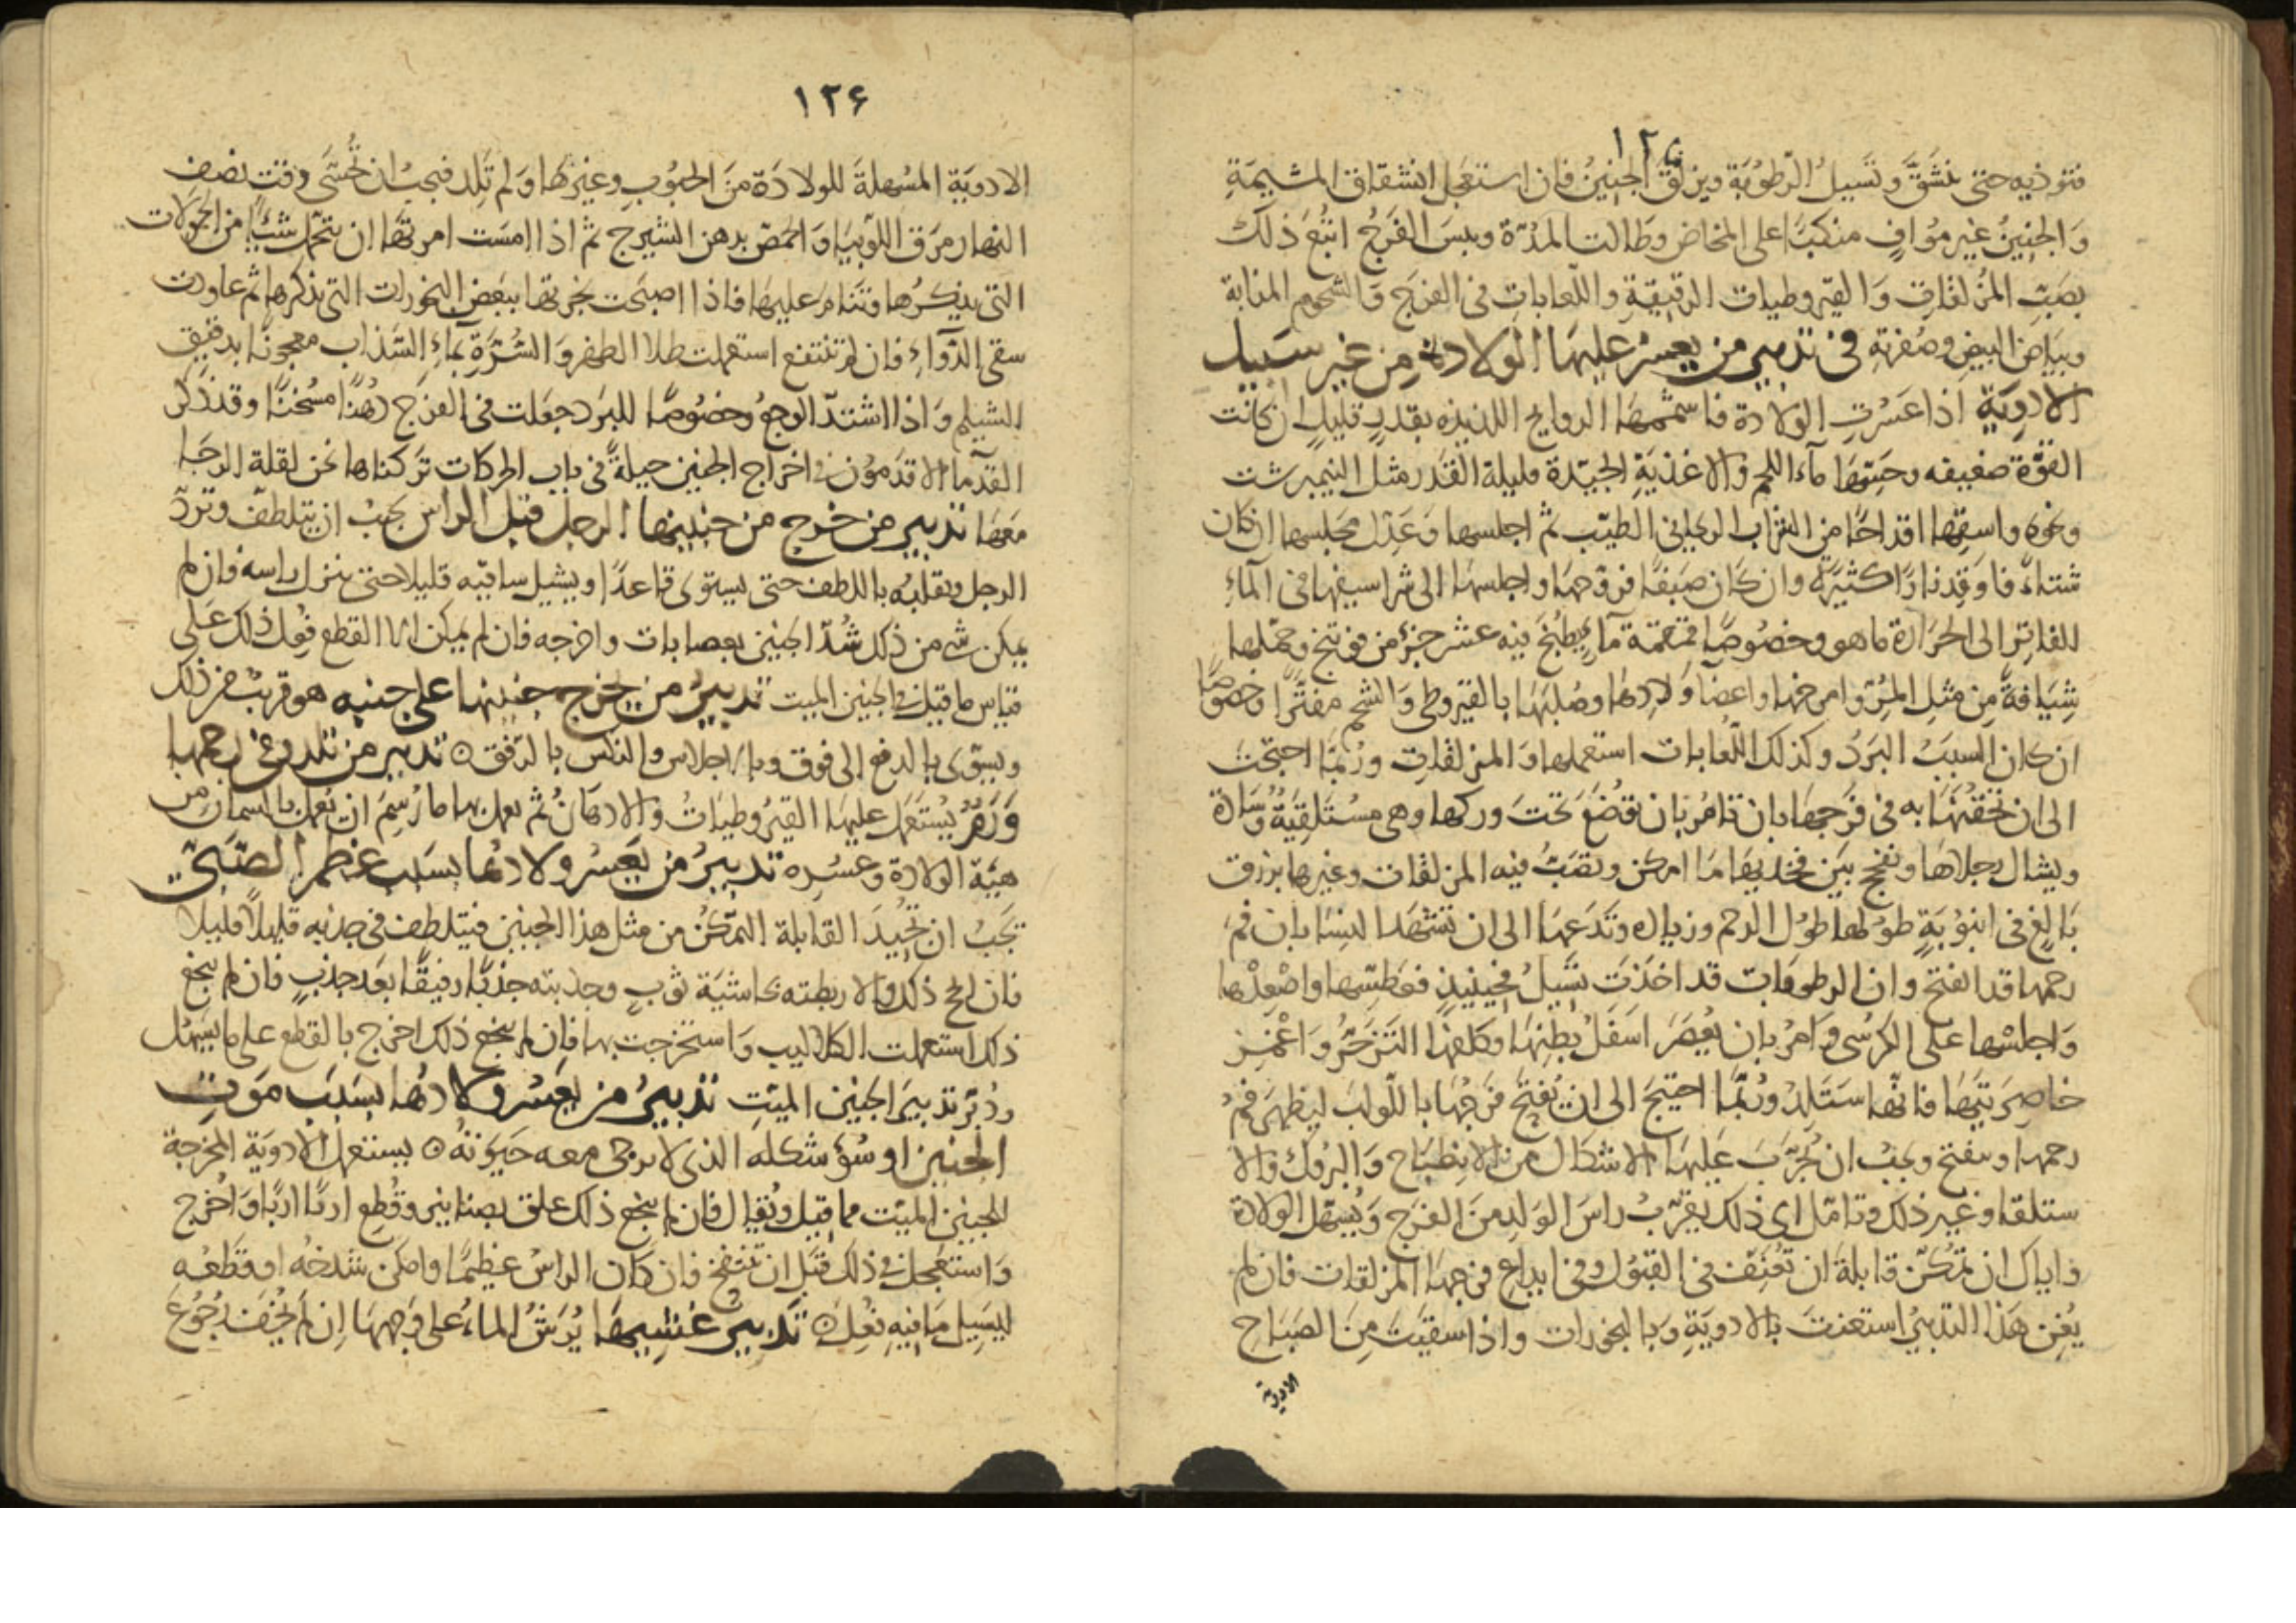 ١٢٤
فتوذيه حتى ينشق وتسيل الرطوبة ويزلق الجنين فان استعجل انشقاق المشيمة
والجنين غير مواف منكبا على المخاض وطالت المدة ويبس الفرج اتبع ذلك
بصب المزلقات والقيروطيات الرقيقة واللعابات في الفرج والشحوم المذابة
وبياض البيض وصفرته في تدبير من يعسر عليها الولادة من غير سبيل
الادوية اذا عسرت الولادة فاشممها الروايح اللذيذه بقدر قليل ان كانت
القوة ضعيفه وحسها ماء اللحم والاغذية الجيدة قليلة القدر مثل النيمبرشت
ونحوه واسقها اقداحا من الشراب الريحاني الطيب ثم اجلسها وعدل مجلسها ان كان
شتاء فاوقد نارا كثيرة وان كان صيفا فروحها واجلسها الى شراسيفها في الماء
الفاتر الى الحرارة ما هو وخصوصا ماء يطبخ فيه عشر جزء من فوتنج وحملها
شيافة من مثل المر وامرخها واعضاء ولادها وصلبها بالقيروطي والشحم مفترا وخصوصا
ان كان السبب البرد وكذلك اللعابات استعملها والمزلقات وربما احتجت
الى ان تحقنها به في فرجها بان تامر بان توضع تحت وركها وهي مستلقية وسادة
ويشال رجلاها ونفج بين فخذيها ما امكن وتصب فيه المزلقات وغيرها بزرق
بالغ في انبوبة طولها طول الرحم وزياده وتدعها الى ان تشهد النسا بان فم
رحمها قد انفتح وان الرطوبات قد اخذت تسيل فحينيذ فعطسها واضغطها
واجلسها على الكرسي وامر بان يعصر اسفل بطنها وكلفها التزحر واغمز
خاصرتيها فانها ستلد وربما احتيج الى ان يفتح فرجها باللولب ليظهر فم
رحمها وينفتح ويجب ان تجرب عليها الاشكال من الانبطاح والبروك والا
ستلقا وغير ذلك وتامل اي ذلك يقرب راس الولد من الفرج ويسهل الولادة
واياك ان تمكن قابلة ان تعنف في القبول وفي ايداع فرجها المزلقات فان لم
يغن هذا التدبير استعنت بالادوية وبالبخورات واذا سقيت من الصباح
الادوية
١٢٤
الادوية المسهلة للولادة من الحبوب وغيرها ولم تلد فيجب ان تحسى وقت نصف
النهار مرق اللوبيا والحمص بدهن الشيرج ثم اذا امست امرتها ان تتحمل شيئا من الحمولات
التي نذكرها وتنام عليها فاذا اصبحت بخرتها ببعض البخورات التي نذكرها ثم عاودت
سقي الدواء فان لم تنتفع استعملت طلا الظهر والسرة بماء السذاب معجونا بدقيق
الشيلم واذا اشتد الوجع وخصوصا للبرد جعلت في الفرج دهنا مسخنا وقد ذكر
القدماء الاقدمون في اخراج الجنين حيلة في باب الحركات تركناها نحن لقلة الرجا
معها تدبير من خرج من جنينها الرجل قبل الراس يجب ان يتلطف وترد
الرجل ويقلبه باللطف حتى يستوى قاعدا ويشيل ساقيه قليلا حتى ينزل راسه فان لم
يمكن شي من ذلك شد الجنين بعصابات واخرجه فان لم يمكن الا القطع فعل ذلك على
قياس ما قيل في الجنين الميت تدبير من يخرج جنينها على جنبه هو قريب من ذلك
ويسوى بالدفع الى فوق وبالاجلاس والنكس بالرفق ٥ تدبير من تلد وفي رحمها
ورم يستعمل عليها القيروطيات والادهان ثم يعمل بها ما رسم ان يعمل بالسمان من
هية الولادة وعسره تدبير من يعسر ولادها بسبب عظم الصبي
يجب ان تجيد القابلة التمكن من مثل هذا الجنين فيتلطف في جذبه قليلا قليلا
فان انجح ذلك والا ربطته بحاشية ثوب وجذبته جذبا رفيقا بعد جذب فان لم ينجع
ذلك استعملت الكلاليب واستخرجت بها فان لم ينجع ذلك اخرج بالقطع على ما يسهل
ودبر تدبير الجنين الميت تدبير من يعسر ولادها بسبب موت
الجنين او سؤ شكله الذي لا يرجى معه حيوته ٥ يستعمل الادوية المخرجة
للجنين الميت مما قيل ويقال فان لم ينجع ذلك علق بصنانير وقطع اربا اربا واخرج
واستعجل في ذلك قبل ان تنتفخ فان كان الراس عظيما وامكن شدخه او قطعه
ليسيل ما فيه فعل ٥ تدبير غشيها يرش الماء على وجهها ان لم يخف رجوع